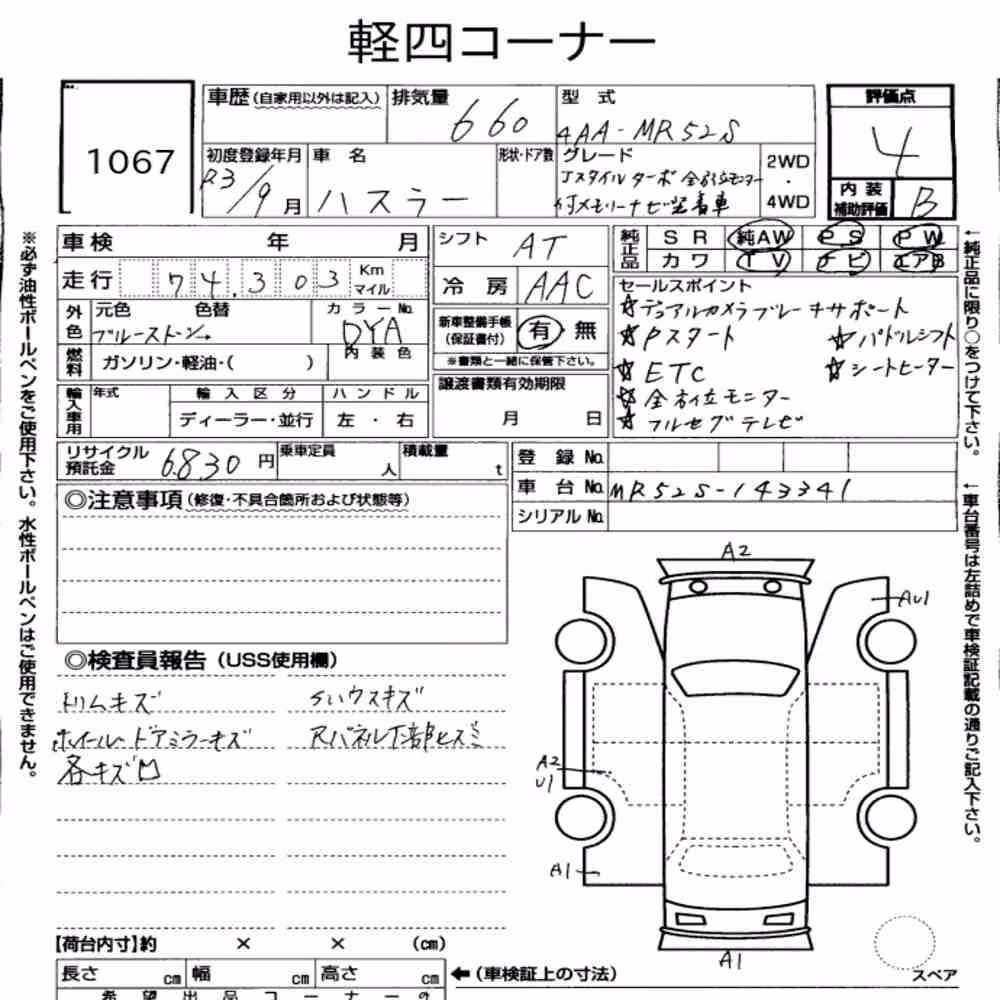 軽四コーナー
1067
車歴(自家用以外は記入)
排気量
660
型 式
4AA-MR52S
評価点
4
初度登録年月
R3/9月
車 名
ハスラー
形状・ドア数
グレード
Jスタイルターボ 全方位モニター
付メモリーナビ装着車
2WD
・
4WD
内装
補助評価
B
車検 年 月
シフト
AT
純正品
SR 純AW PS PW
カワ TV ナビ エアB
走行 74,303 Km
マイル
冷房
AAC
セールスポイント
☆デュアルカメラブレーキサポート
☆Pスタート ☆パドルシフト
☆ETC ☆シートヒーター
☆全方位モニター
☆フルセグテレビ
外色
元色 色替
ブルーストーン
カラーNo.
DYA
新車整備手帳
(保証書付)
有 無
※書類と一緒に保管下さい。
燃料
ガソリン・軽油・( )
内装色
譲渡書類有効期限
月 日
輸入車用
年式
輸入区分
ハンドル
ディーラー・並行
左・右
リサイクル
預託金
6830 円
乗車定員
人
積載量
t
登録No.
車台No.
MR52S-143341
シリアルNo.
◎注意事項(修復・不具合箇所および状態等)
◎検査員報告(USS使用欄)
トリムキズ
ホイール・ドアミラーキズ
各キズ凹
小いウスキズ
Rパネル下部ヒズミ
A2
AU1
A2
U1
A1
A1
スペア
【荷台内寸】約 × × (cm)
長さ cm 幅 cm 高さ cm
←(車検証上の寸法)
希望出品コーナーの
※必ず油性ボールペンをご使用下さい。水性ボールペンはご使用できません。
←純正品に限り○をつけて下さい。
←車台番号は左詰めで車検証記載の通りご記入下さい。